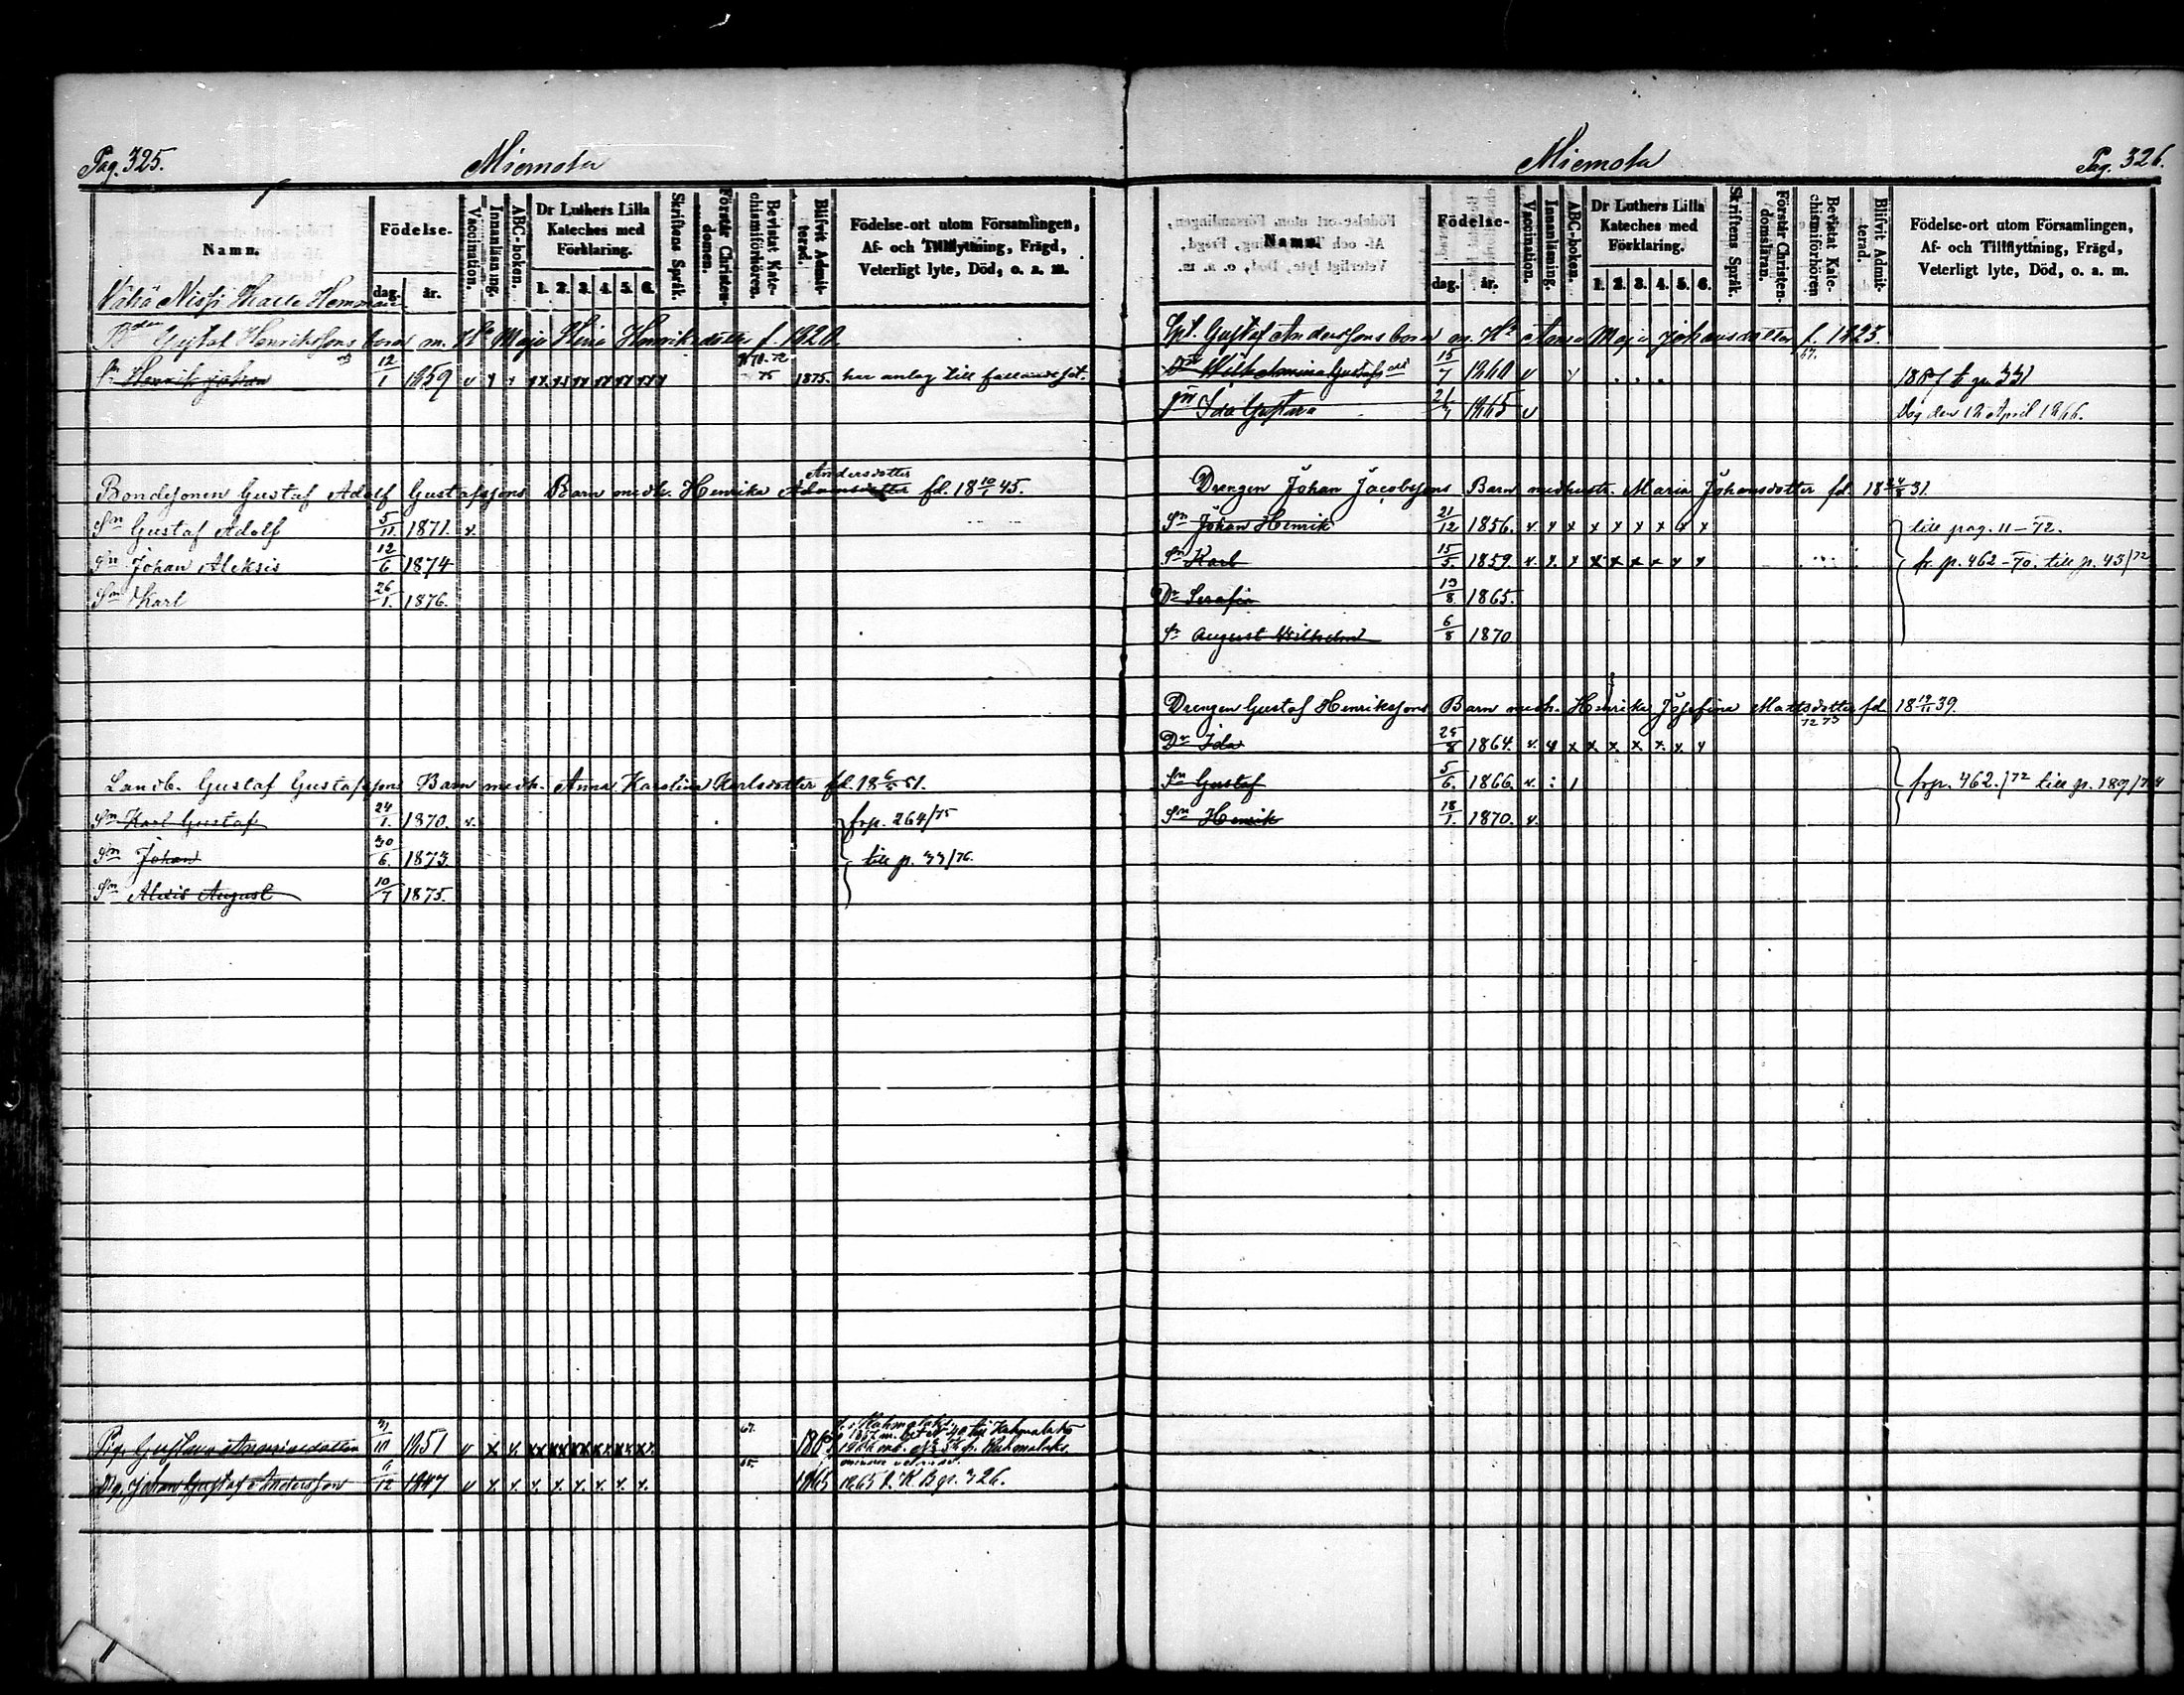 Pag. 325.
Miemola
Namn.
Födelse-
dag.
år.
Vaccination.
Innanläsning.
ABC-boken.
Dr Luthers Lilla Kateches med Förklaring.
1. 2. 3. 4. 5. 6.
Skriftens Språk.
Förstår Christendomen.
Bevistat Katechismiförhören.
Blifvit Admitterad.
Födelse-ort utom Församlingen, Af- och Tillflyttning, Frägd, Veterligt lyte, Död, o. a. m.
Gustaf Henrikssons barn m. Maja Henriksdotter f. 1820.
Sn Henrik Johan 12/1 1859 v 1875. har anlag till fallandesot.
Bondesonen Gustaf Adolf Gustafssons Barn medh. Henrika Adamsdotter Andersdotter fd. 18 10/1 45.
Sn Gustaf Adolf 5/11 1871. v.
Sn Johan Aleksis 12/6 1874
Sn Karl 26/1. 1876.
Landb. Gustaf Gustafssons Barn medh. Anna Karolina Karlsdotter fd. 18 51.
Sn Karl Gustaf 24/1. 1870. v. frp. 264/75
Sn Johan 30/6. 1873. till p. 33/76.
Sn Alexis August 10/7 1875.
Pig. Gustava 1851 v x
Dg. Johan Gustaf Andersson 12 1847 v x. x. x. x. x. x. x. x. 1865 1865 K. B. p. 326.
Miemola
Pag. 326.
Namn.
Födelse-
dag.
år.
Vaccination.
Innanläsning.
ABC-boken.
Dr Luthers Lilla Kateches med Förklaring.
1. 2. 3. 4. 5. 6.
Skriftens Språk.
Förstår Christendomsläran.
Bevistat Katechismiförhören
Blifvit Admitterad.
Födelse-ort utom Församlingen, Af- och Tillflyttning, Frägd, Veterligt lyte, Död, o. a. m.
Gustaf Anderssons barn m. Anna Maja Johansdotter f. 1823.
Wilhelmina 15/7 1860 v
Ida Gustava 1865 v den 12 April 1866.
Drengen Johan Jacobssons Barn medhustr. Maria Johansdotter fd. 18 24/8 31.
Sn Johan Henrik 21/12 1856. v. x x x x x x x x till pag. 11-72.
Sn Karl 15/5. 1859. v. x. x x x x x x x fr. p. 462-70. till p. 43/72
Dr Serafia 13/8 1865.
Sn August Wilhelm 6/8 1870
Drengen Gustaf Henrikssons Barn medh. Henrika Josefina Mattsdotter fd. 18 19/11 39.
Dr Ida 25/8 1864. v. x x x x x x x x 72 73
Sn Gustaf 5/6. 1866. v. frp. 462./72 till p. 189/74
Sn Henrik 18/1. 1870. v.